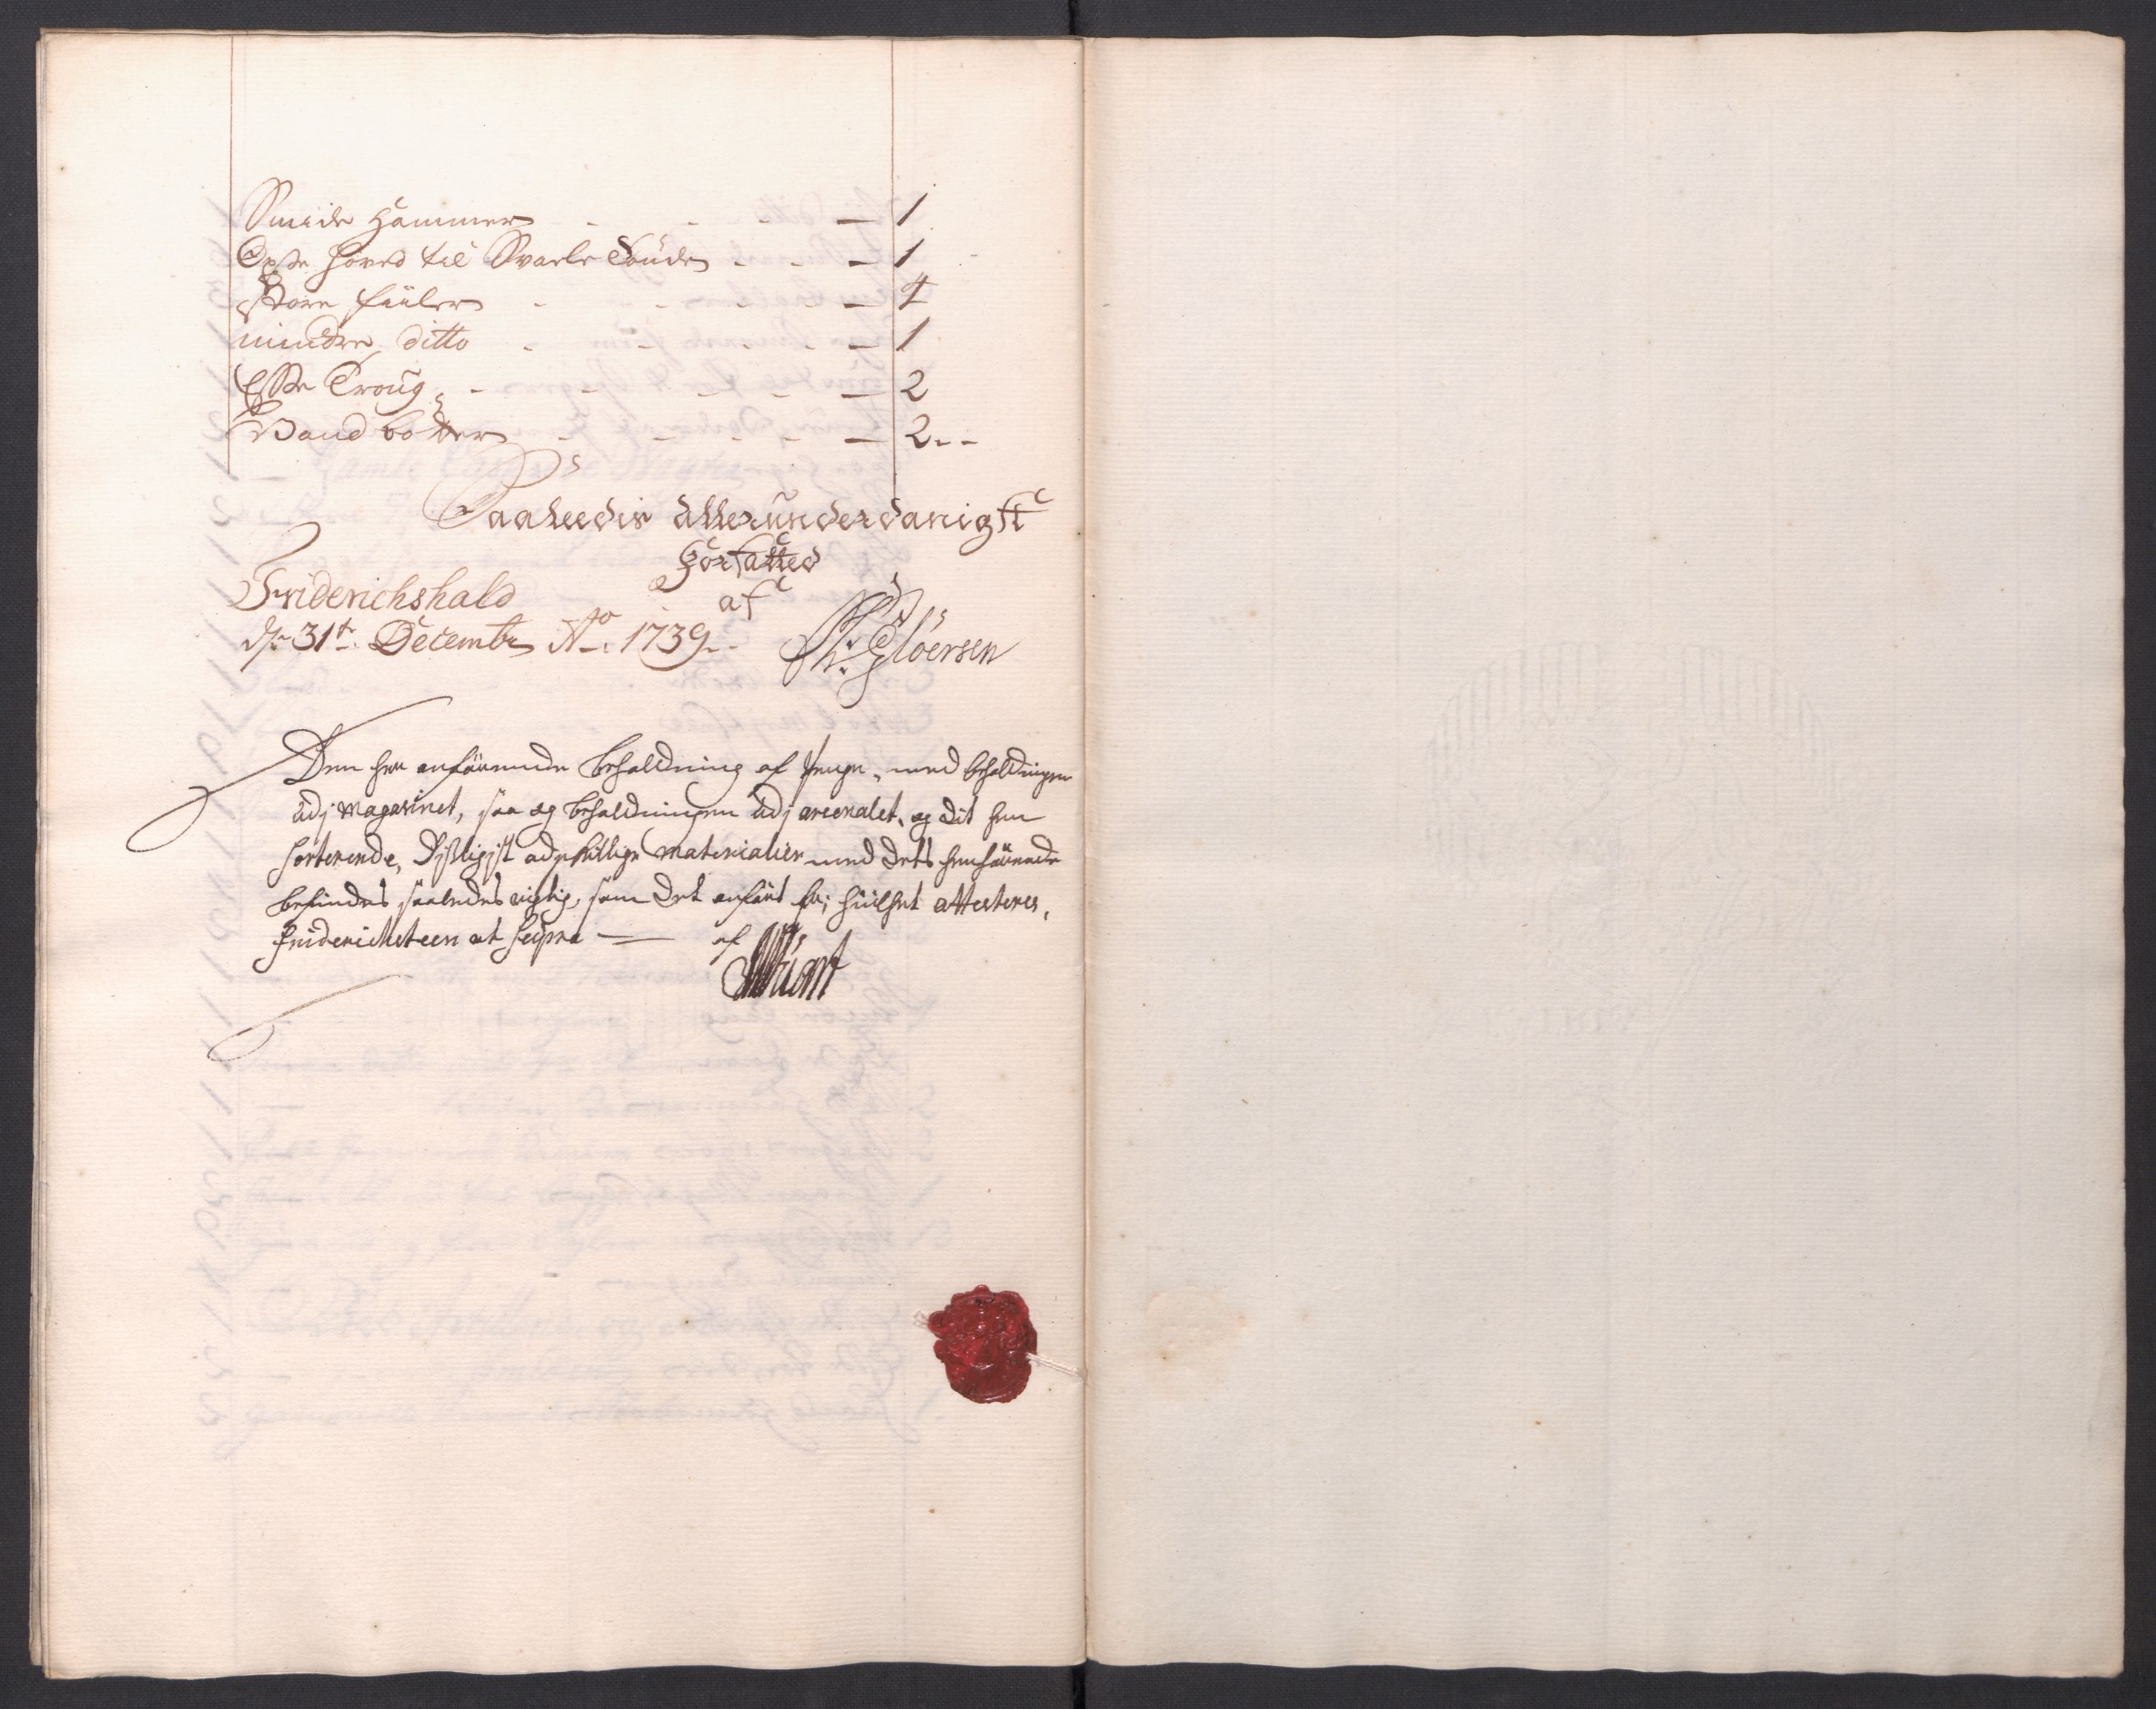 Smide Hammer - - - - 1
hoved til Svarle Taude - - - 1
Store fiiler - - - - - 4
mindre ditto - - - - - 1
Esse Troug - - - - - 2
Vand bøtter - - - - - 2 - -
Saaleedis allerunderdanigst
Forfatted
Friderichshald af
d: 31te Decembr Ao 1739 Gløersen
Den her anførende beholdning af Penge, med beholdningen
udj Magazinet, saa og beholdningen udj arsenalet, og dit hen
horterende, Disligist adskillige Materialier med dets henhørende
befindes saaledes rigtig, som det anført er; hvilket attesteres,
Friderichsteen ut supra — af
Stuart